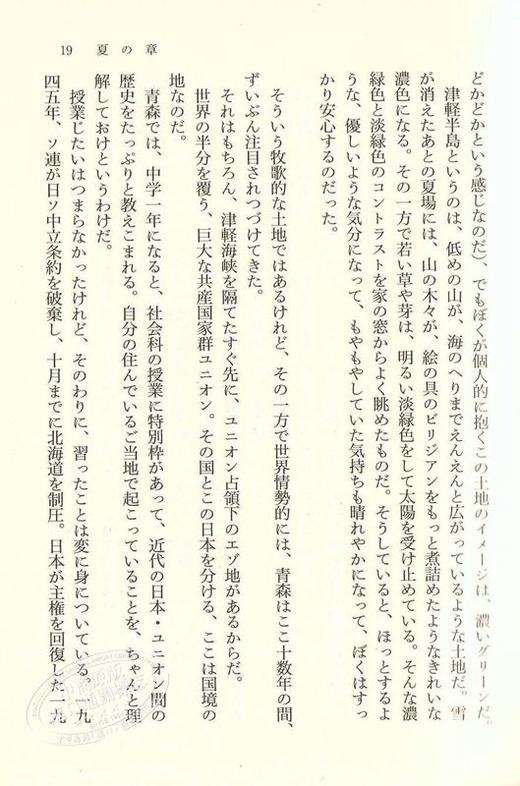 19 夏の章
どかどかという感じなのだ)、でもぼくが個人的に抱くこの土地のイメージは、濃いグリーンだ。
津軽半島というのは、低めの山が、海のへりまでえんえんと広がっているような土地だ。雪
が消えたあとの夏場には、山の木々が、絵の具のビリジアンをもっと煮詰めたようなきれいな
濃色になる。その一方で若い草や芽は、明るい淡緑色をして太陽を受け止めている。そんな濃
緑色と淡緑色のコントラストを家の窓からよく眺めたものだ。そうしていると、ほっとするよ
うな、優しいような気分になって、もやもやしていた気持ちも晴れやかになって、ぼくはすっ
かり安心するのだった。
そういう牧歌的な土地ではあるけれど、その一方で世界情勢的には、青森はここ十数年の間、
ずいぶん注目されつづけてきた。
それはもちろん、津軽海峡を隔てたすぐ先に、ユニオン占領下のエゾ地があるからだ。
世界の半分を覆う、巨大な共産国家群ユニオン。その国とこの日本を分ける、ここは国境の
地なのだ。
青森では、中学一年になると、社会科の授業に特別枠があって、近代の日本・ユニオン間の
歴史をたっぷりと教えこまれる。自分の住んでいるご当地で起こっていることを、ちゃんと理
解しておけというわけだ。
授業じたいはつまらなかったけれど、そのわりに、習ったことは変に身についている。一九
四五年、ソ連が日ソ中立条約を破棄し、十月までに北海道を制圧。日本が主権を回復した一九